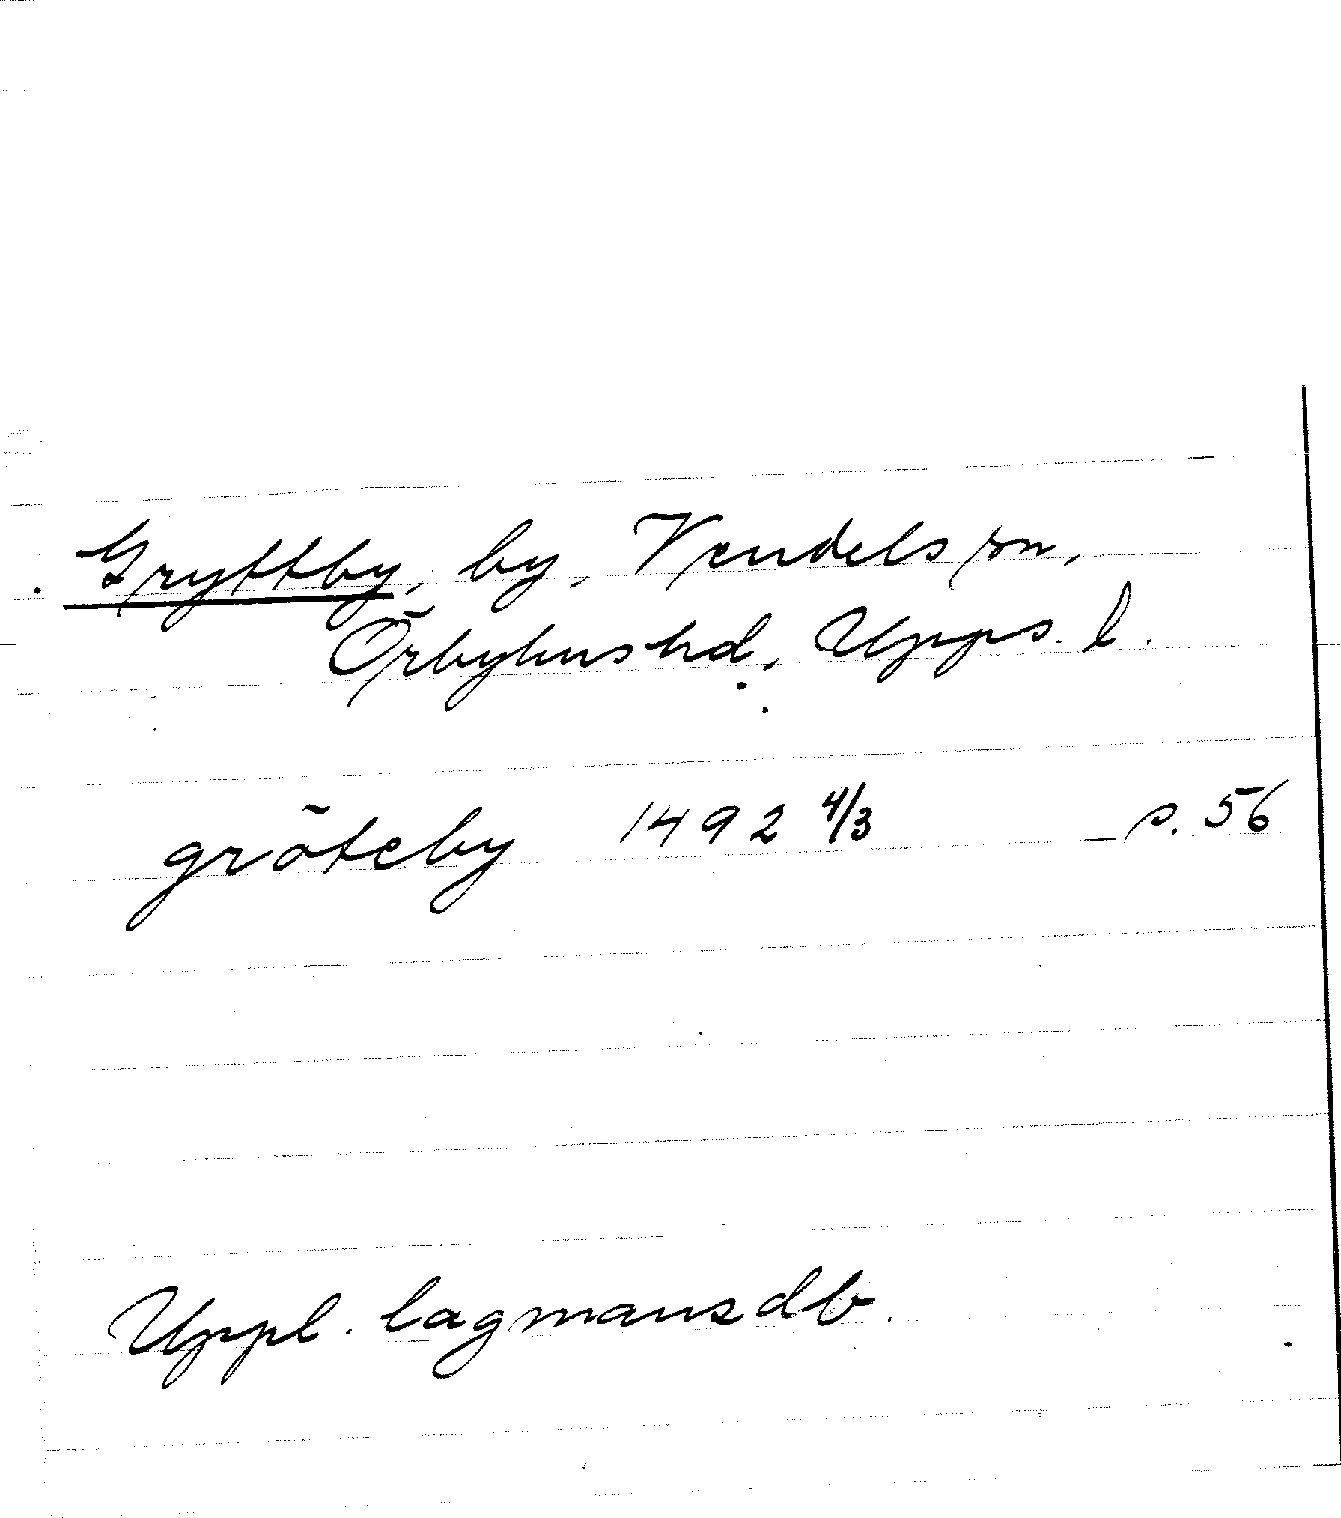 Gryttby, by, Vendels sn,
Örbyhus hd, Upps. l.
gröteby 1492 4/3 s. 56
Uppl. lagmansdb.